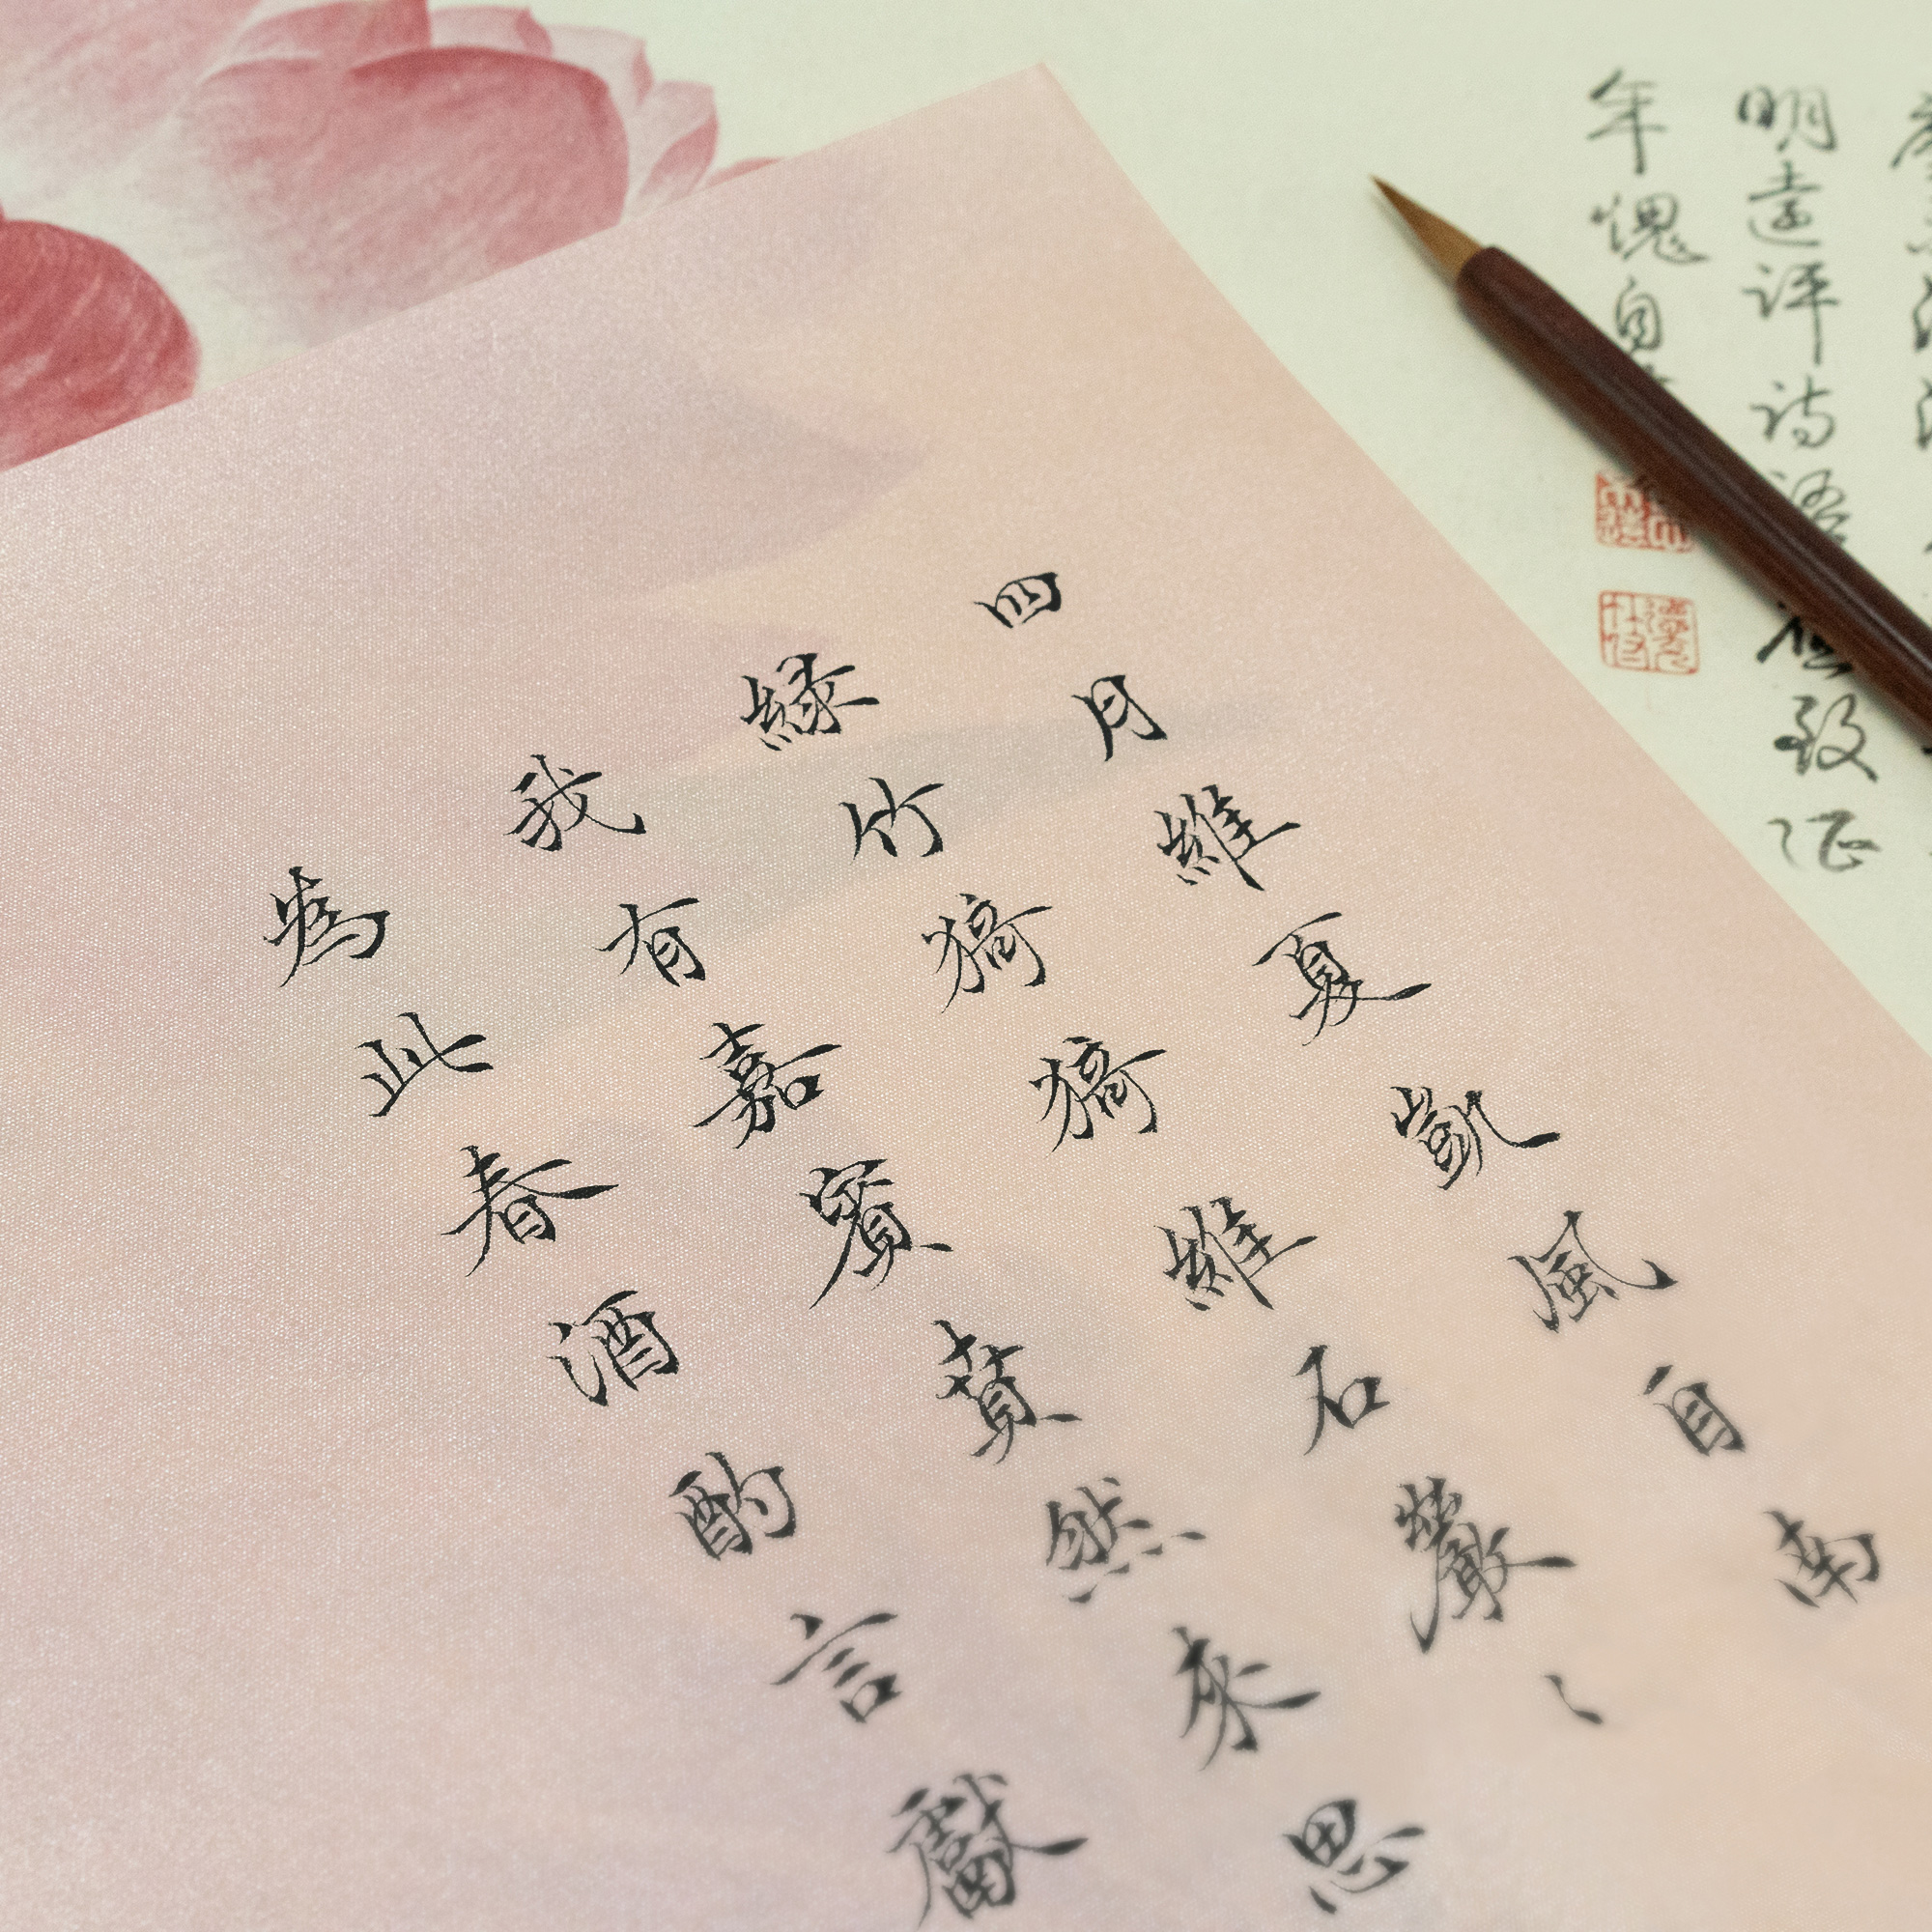 明遠評詩致
年愧自
四月維夏凱風自南
綠竹猗猗維石巖〻
我有嘉賓賁然來思
為此春酒酌言獻